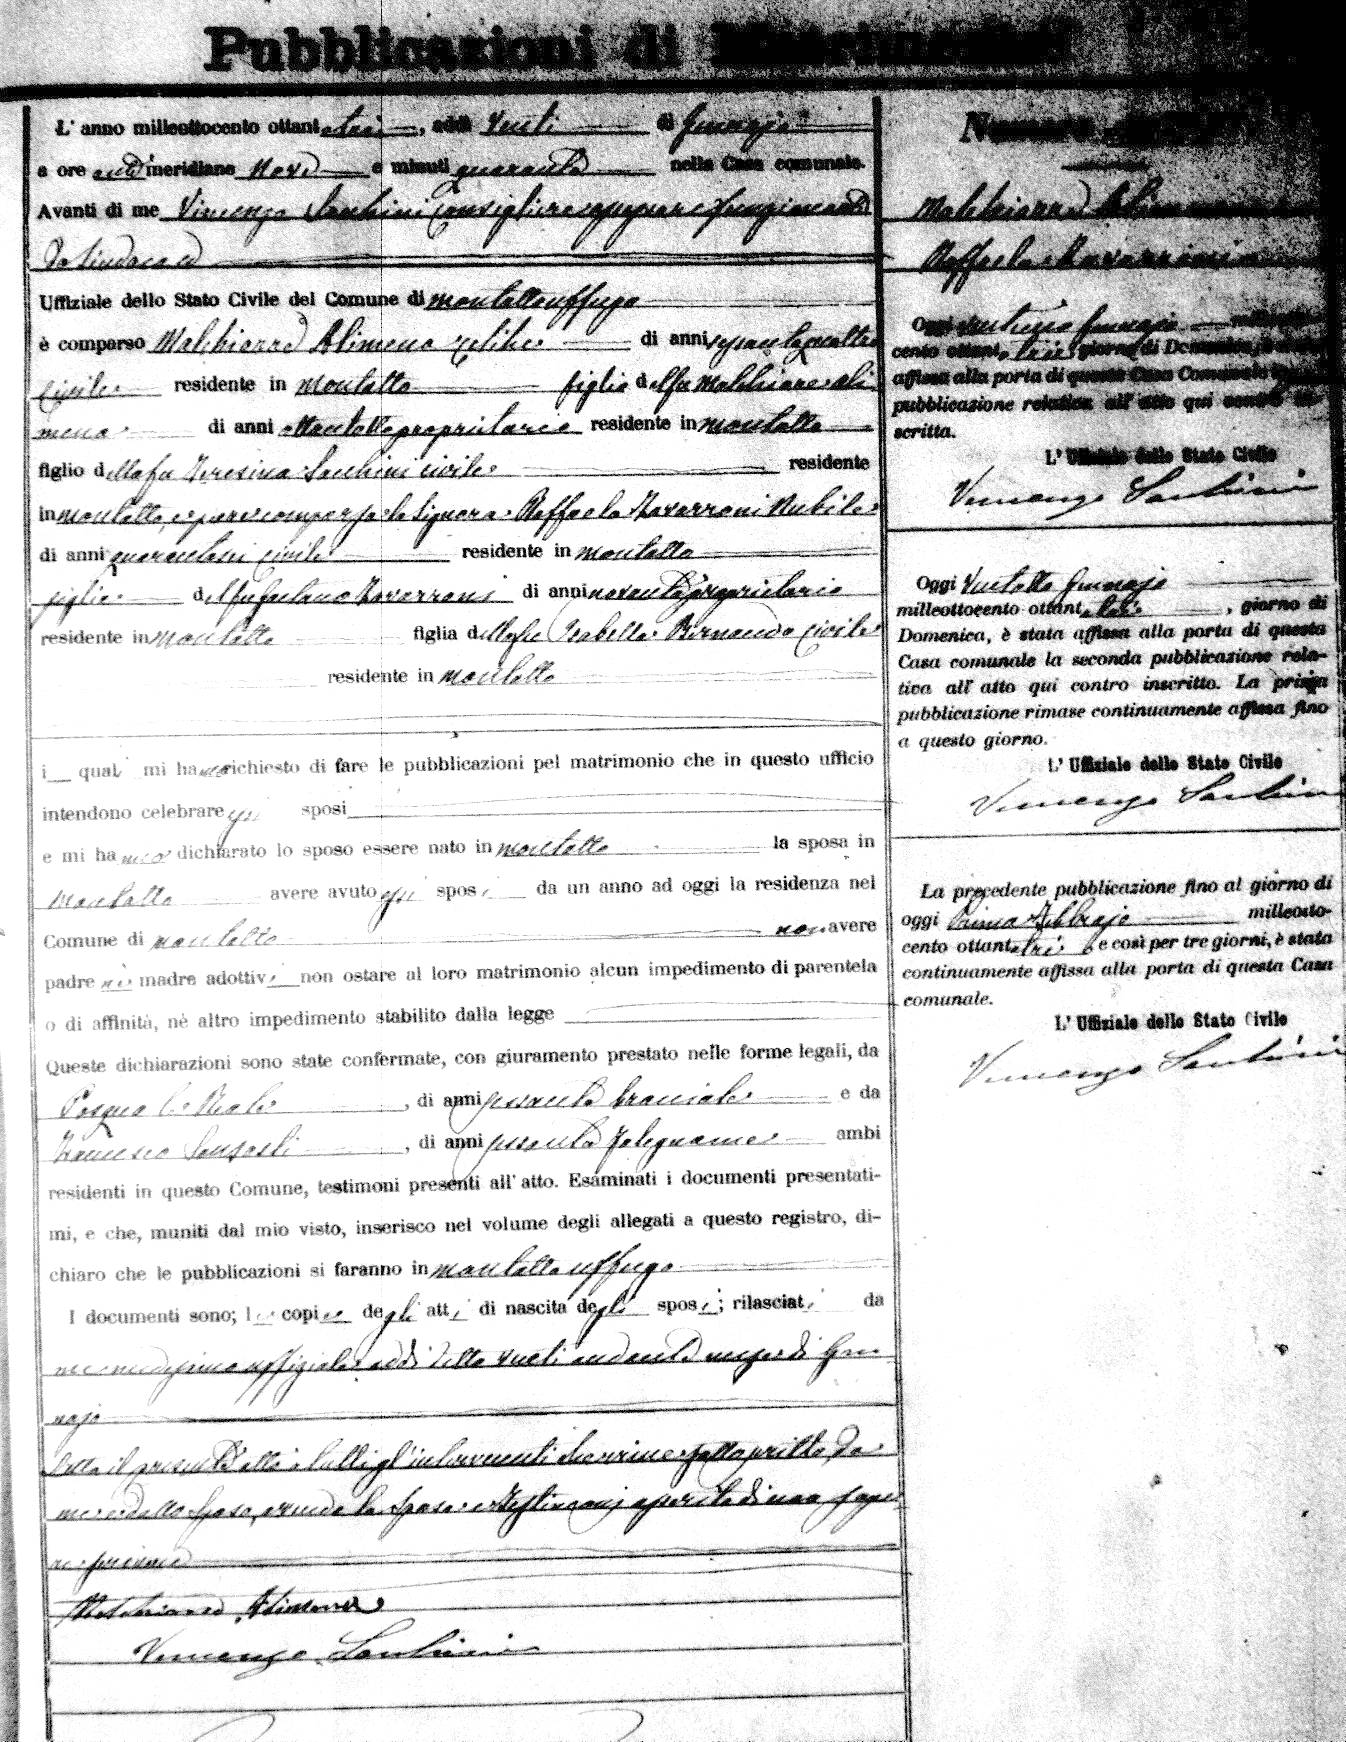 Pubblicazioni di Matrimonio
L' anno milleottocento ottantatrè, addì Venti di Gennajo
a ore antimeridiane Nove e minuti quaranta nella Casa comunale.
Avanti di me Vincenzo Sacchini Consigliere funzionante
da Sindaco ed
Uffiziale dello Stato Civile del Comune di Montalto Uffugo
è comparso Malchiorre Alimena celibe di anni sessantaquattro
civile residente in Montalto figlio del fu Malchiorre Ali
mena di anni ottantotto proprietario residente in Montalto
figlio della fu Teresina Sacchini civile residente
in Montalto, e pure comparsa la Signora Raffaela Navarroni Nubile
di anni civile residente in Montalto
figlia del fu Gaetano Navarroni di anni novanta proprietario
residente in Montalto figlia della fu Isabella Bernaudo civile
residente in Montalto
i quali mi hanno richiesto di fare le pubblicazioni pel matrimonio che in questo ufficio
intendono celebrare essi sposi
e mi hanno dichiarato lo sposo essere nato in Montalto la sposa in
Montalto avere avuto essi sposi da un anno ad oggi la residenza nel
Comune di Montalto non avere
padre nè madre adottivi non ostare al loro matrimonio alcun impedimento di parentela
o di affinità, nè altro impedimento stabilito dalla legge
Queste dichiarazioni sono state confermate, con giuramento prestato nelle forme legali, da
Pasquale Reale, di anni sessanta bracciale e da
Francesco Sansosti, di anni sessanta falegname ambi
residenti in questo Comune, testimoni presenti all' atto. Esaminati i documenti presentati-
mi, e che, muniti dal mio visto, inserisco nel volume degli allegati a questo registro, di-
chiaro che le pubblicazioni si faranno in Montalto Uffugo
I documenti sono; le copie degli atti di nascita degli sposi; rilasciati da
me medesimo uffiziale addì detto venti andante mese di Gen
najo
Letto il presente atto a tutti gl'intervenuti sottoscritto da
me e dallo sposo, avendo la sposa e testimoni asserito di non sape
re firmare
Malchiorre Alimena
Vincenzo Sacchini
Numero
Malchiorre Alimena
Raffaela Navarroni
Oggi ventuno Gennajo milleotto-
cento ottantatrè giorno di Domenica, è stata
affissa alla porta di questa Casa Comunale la
pubblicazione relativa all' atto qui contro in-
scritta.
L' Uffiziale dello Stato Civile
Vincenzo Sacchini
Oggi Ventotto Gennajo
milleottocento ottantatrè, giorno di
Domenica, è stata affissa alla porta di questa
Casa comunale la seconda pubblicazione rela-
tiva all' atto qui contro inscritto. La prima
pubblicazione rimase continuamente affissa fino
a questo giorno.
L' Uffiziale dello Stato Civile
Vincenzo Sacchini
La precedente pubblicazione fino al giorno di
oggi Primo Febbrajo milleotto-
cento ottantatrè e così per tre giorni, è stata
continuamente affissa alla porta di questa Casa
comunale.
L' Uffiziale dello Stato Civile
Vincenzo Sacchini